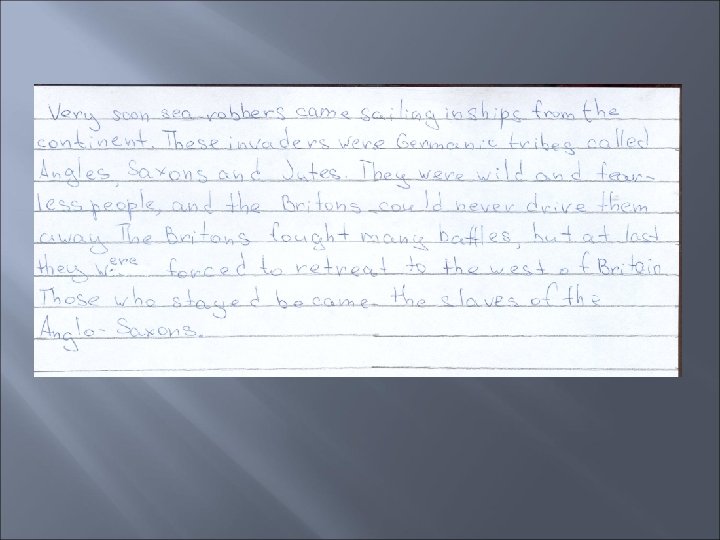 Very soon sea-robbers came sailing in ships from the
continent. These invaders were Germanic tribes called
Angles, Saxons and Jutes. They were wild and fear-
less people, and the Britons could never drive them
away. The Britons fought many battles, but at last
they were forced to retreat to the west of Britain.
Those who stayed became the slaves of the
Anglo-Saxons.